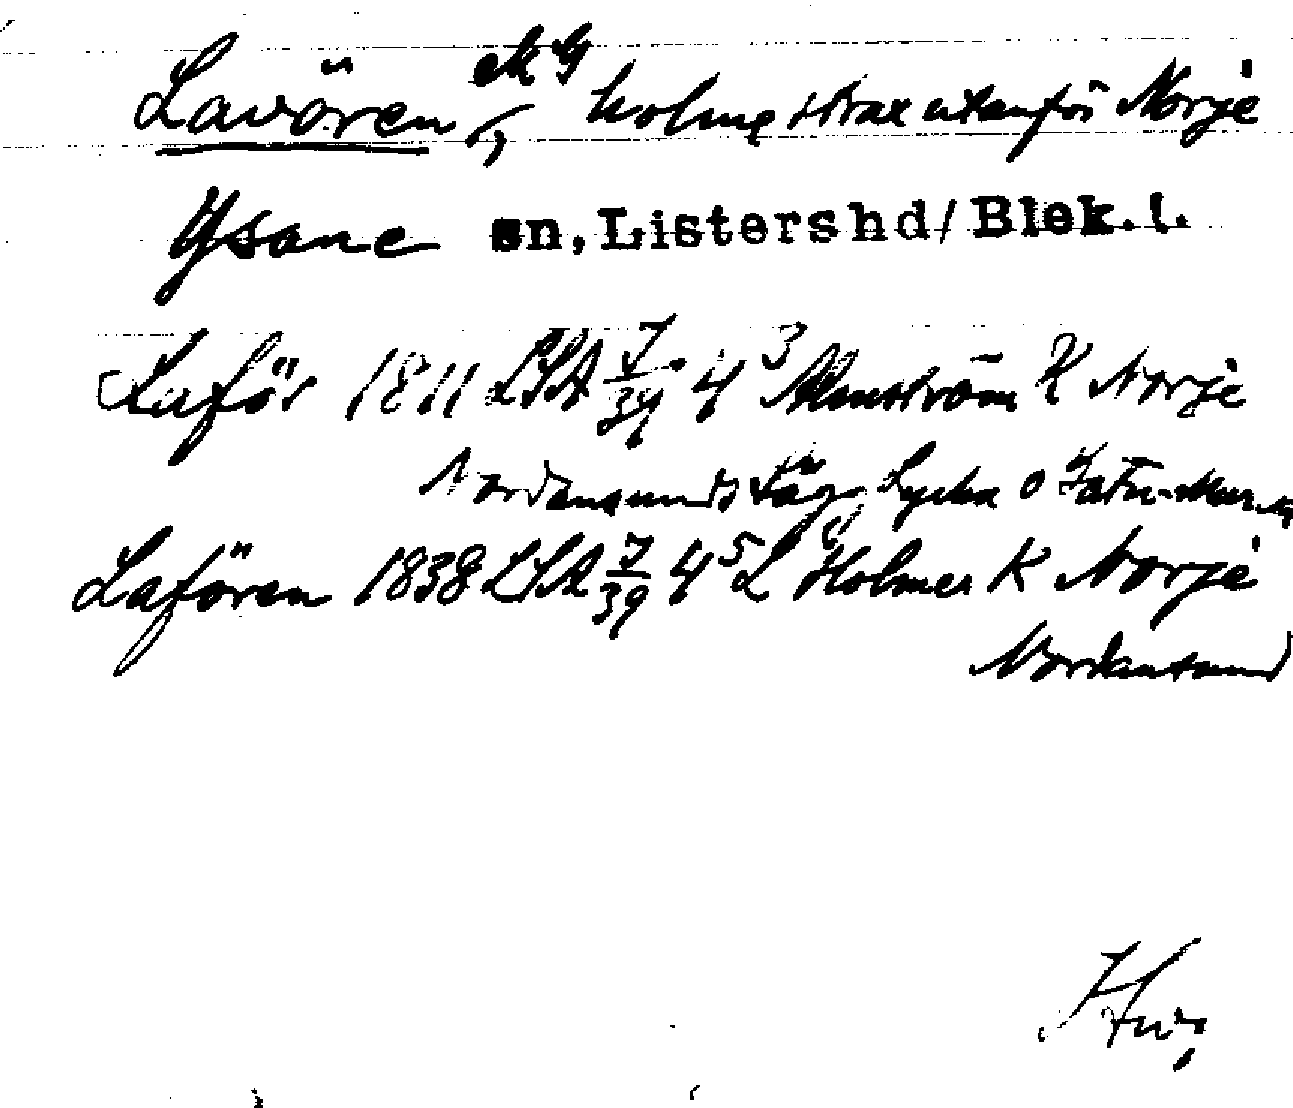 Lavören, holme strax utanför Norje
Ysane sn, Listershd/Blek.l.
Laför 1811 LSA 7/39 4 3 Almström K Norje
Nordansunds Lycka o
Laforen 1838 LSA 7/39 4 5 L Holmer K Norje
Nordansund